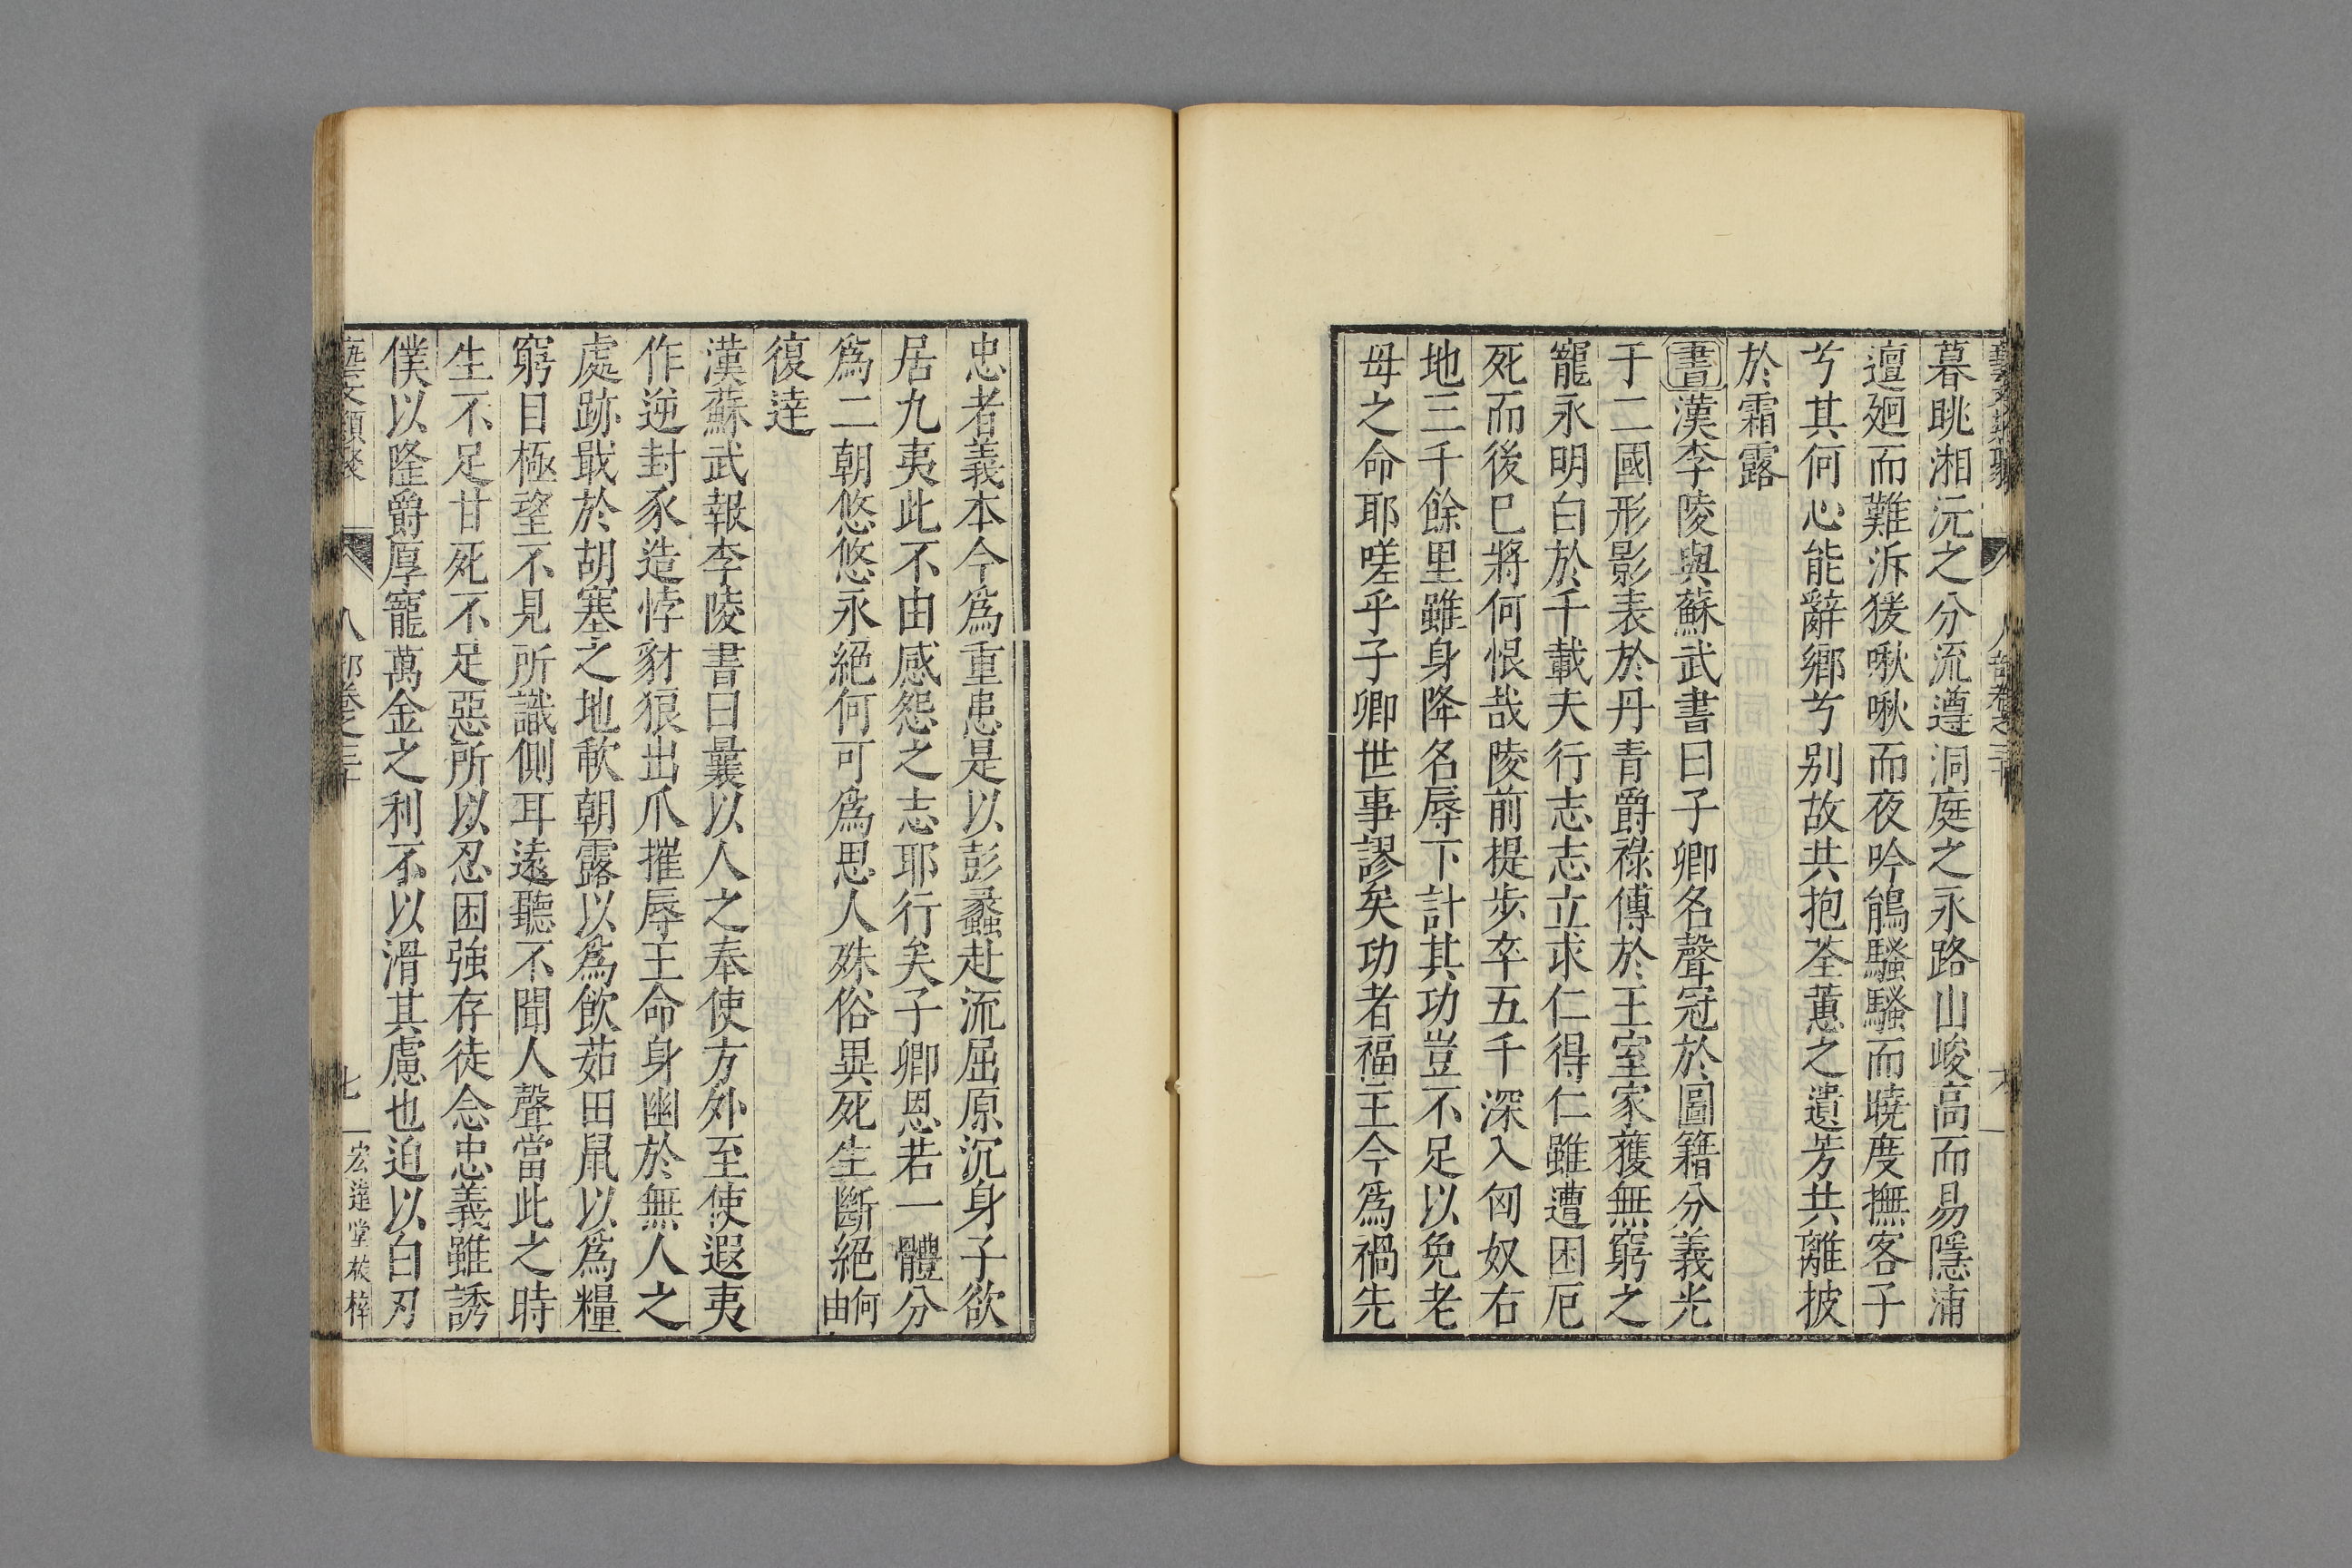 暮眺湘沅之分流遵洞庭之永路山峻高而易隱浦
邅廻而難泝猨啾啾而夜吟鵃騷騷而曉度撫客子
兮其何心能辭鄉兮别故共抱荃蕙之遺芳共離披
於霜露
書漢李陵與蘇武書曰子卿名聲冠於圖籍分義光
于二國形影表於丹青爵祿傳於王室家獲無窮之
寵永明白於千載夫行志志立求仁得仁雖遭困厄
死而後巳將何恨哉陵前提步卒五千深入匈奴右
地三千餘里雖身降名辱下計其功豈不足以免老
母之命耶嗟乎子卿世事謬矣功者福主今爲禍先
忠者義本今爲重患是以彭蠡赴流屈原沉身子欲
居九夷此不由感怨之志耶行矣子卿恩若一體分
爲二朝悠悠永絕何可爲思人殊俗異死生斷絕何由
復達
漢蘇武報李陵書曰曩以人之奉使方外至使遐夷
作逆封豕造悖豺狼出爪摧辱王命身幽於無人之
處跡戢於胡塞之地歃朝露以爲飲茹田鼠以爲糧
窮目極望不見所識側耳遠聽不聞人聲當此之時
生不足甘死不足惡所以忍困強存徒念忠義雖誘
僕以隆爵厚寵萬金之利不以滑其慮也迫以白刃
藝文類聚 八部卷之三十 七 宏達堂校梓